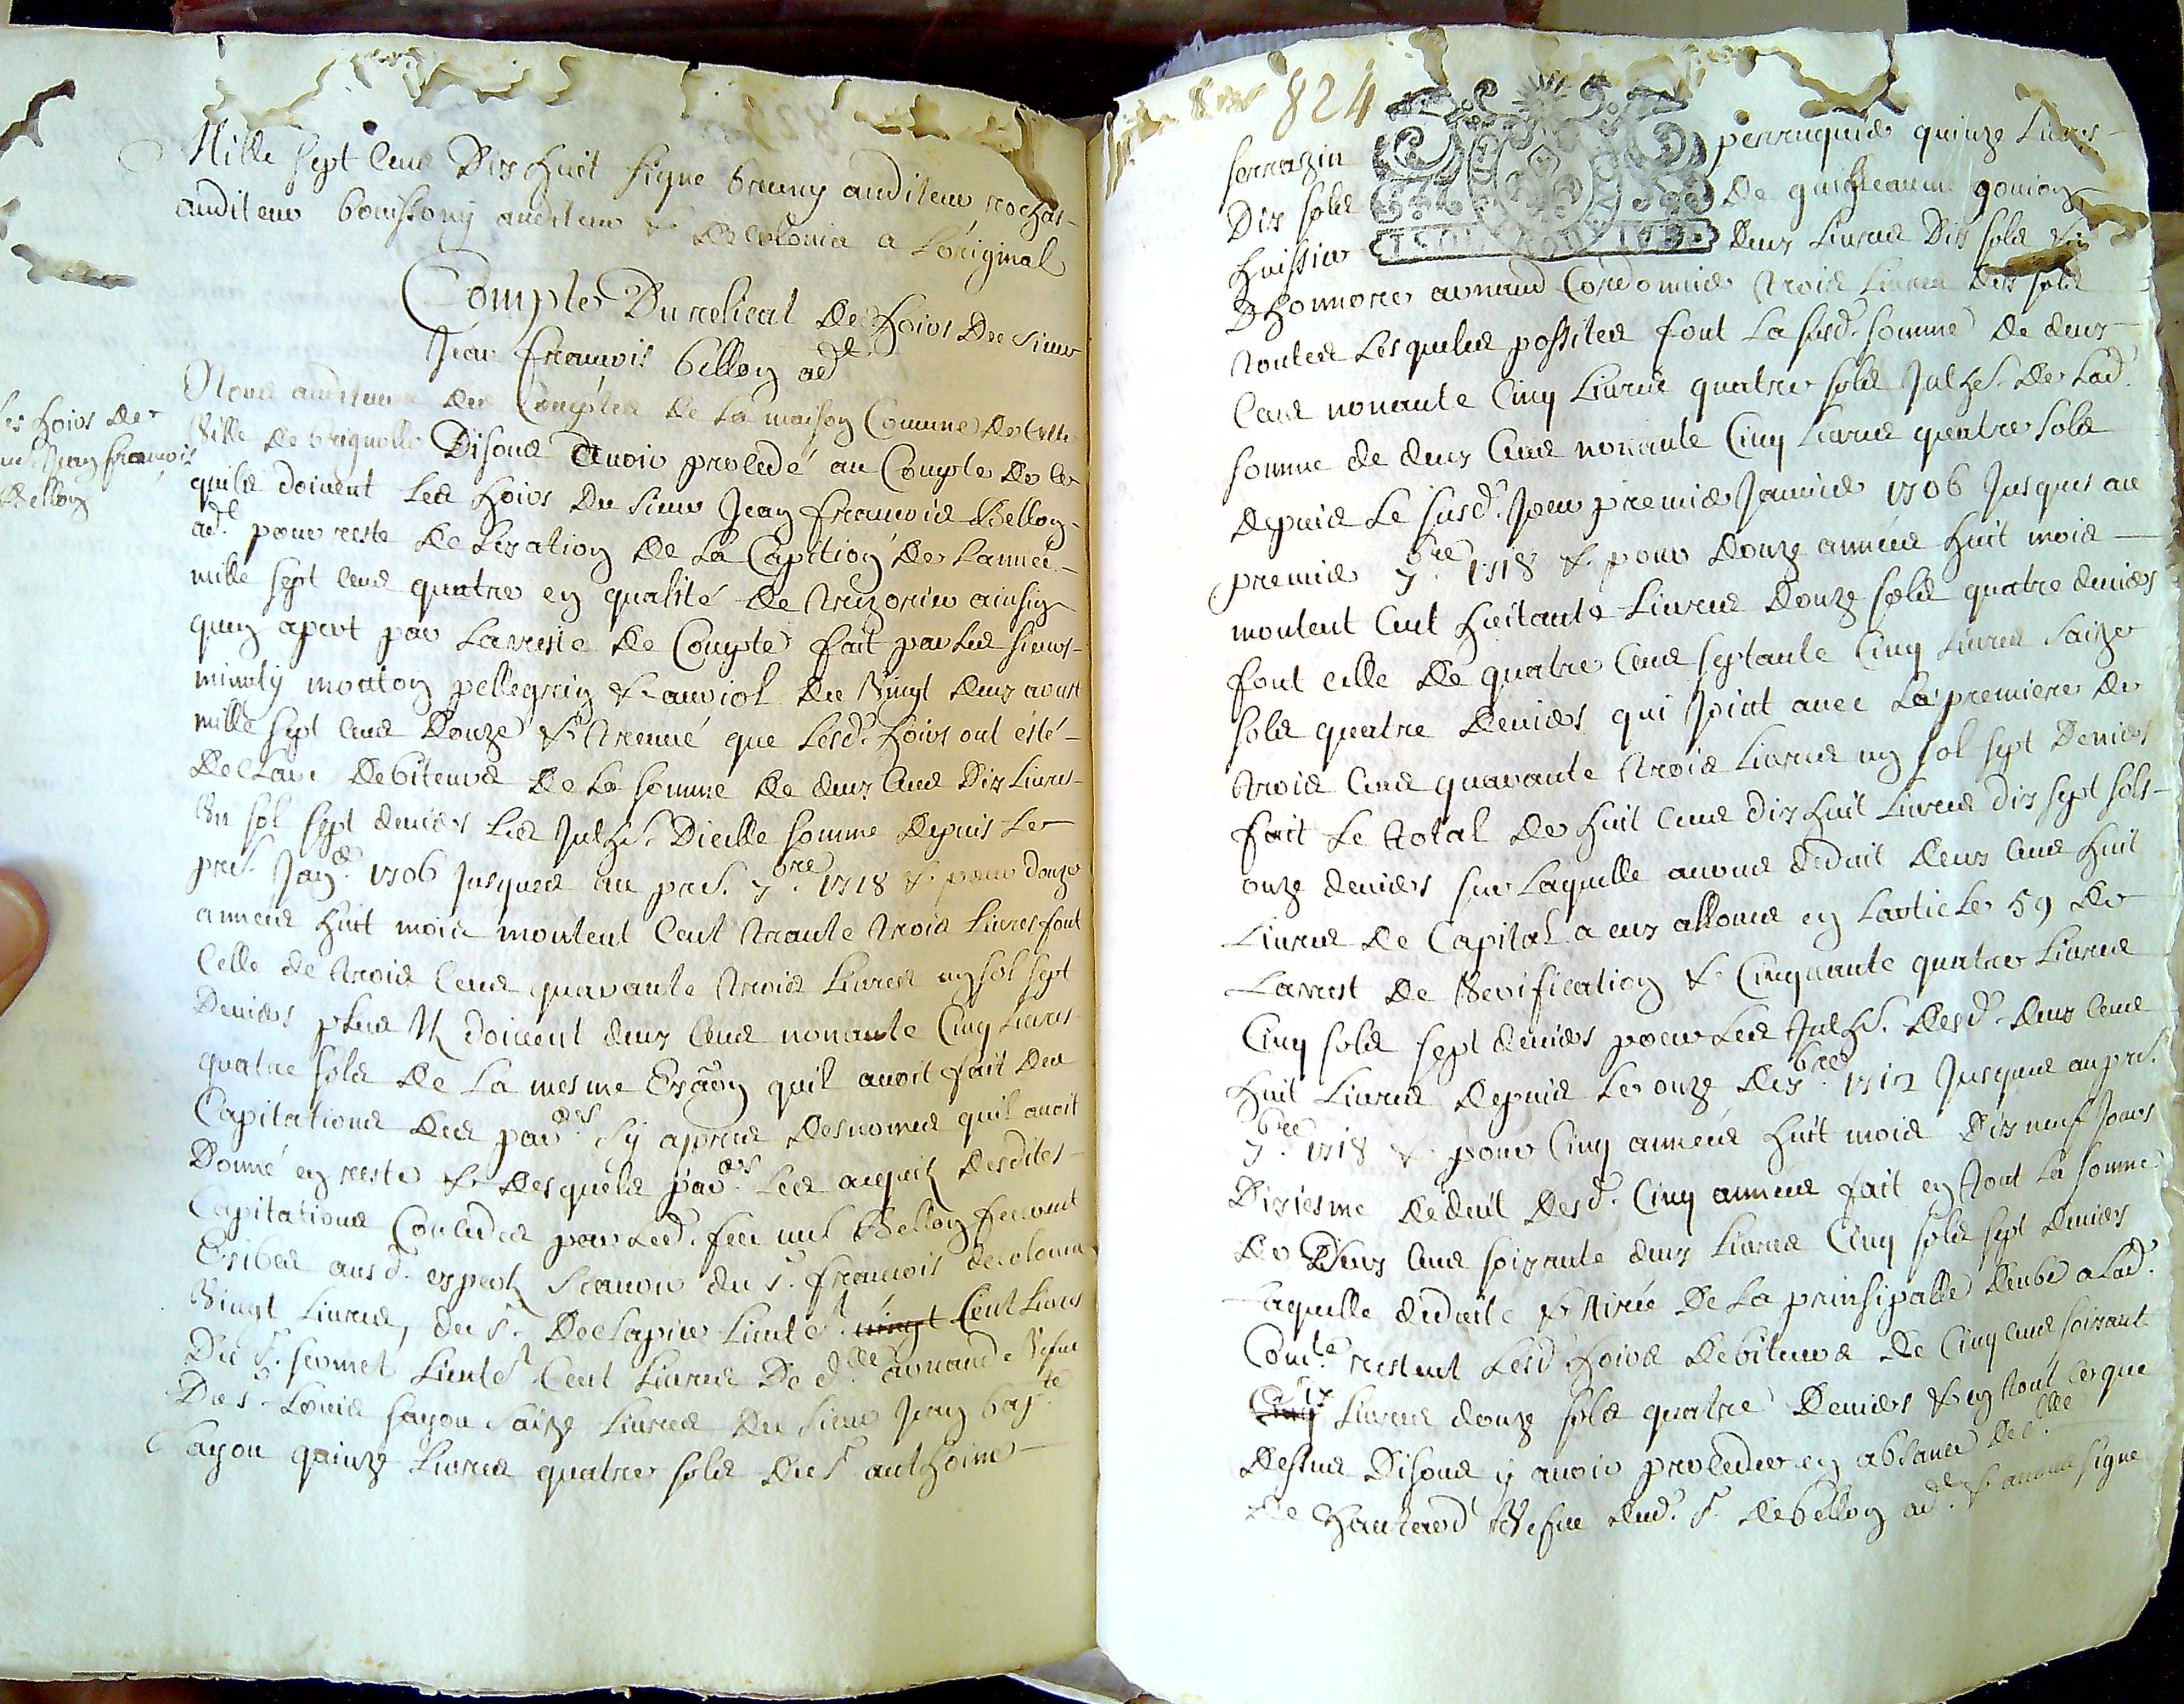 Mille sept Cens Dix huit signe bruny auditeur rochas
auditeur bouissony auditeur & Decolonia a Loriginal
Compte Du relicat De hoirs Du sieur
Jean francois belloy ad.t
Les hoirs de
Jean francois
Belloy
Nous auditeurs des Comptes De La maison Comune De Cette
Ville De brignolle Disons Avoir procedé au Compte De ce
quils doivent Les hoirs Du sieur Jean francois Belloy
ad.t pour reste De Lexation De La Capition De Lannée
mille sept Cens quatre en qualité De trezorier ainsin
quen apert par Larreste De Compte fait par Les sieurs
minuty mouton pellegrin & auriol Du Vingt deux aoust
mille sept Cens Douze & treuvé que Lesd. hoirs ont ésté
Declaré Debiteurs De La somme De deux Cens Dix Livres
Un sol sept deniers Les Jnth.s Dicelle somme Depuis Le
pre.r Jan.er 1706 Jusques au pre.r 7.bre 1718 & pour douze
années huit mois montent Cent trante trois Livres font
Celle de trois Cens quarante trois Livres un sol sept
Deniers plus Jls doivent deux Cens nonante Cinq Livres
quatre sols De La mesme Exãon quil avoit fait Des
Capitations Des par.ers sy apres Desnomes quil avoit
Donné en reste & Desquels par.ers Les acquits Desdites
Capitations Concedes par Led. feu me Belloy feurent
Exibes ausd. expertz scavoir du s.r francois decolonia
Vingt Livres, du s.r Declapier Lieute.t vingt Cent Livres
Du s.r sermet Lieute.t Cent Livres De d.lle arnaude Vefue
Du s.r Louis fayou saize Livres Du sieur Jean bap.te
fayou quinze Livres quatre sols Du s.r anthoine
824
serrazin perruquier quinze Livres
Dix sols De guilheaume gouion
huissier deux Livres Dix sols &
Dhonnore arnaud Cordonnier trois Livres dix sols
toutes Lesquelles possites font La susd. somme De deux
Cens nonante Cinq Livres quatre sols Jnth.s De Lad.
somme de deux Cens nonante Cinq Livres quatre sols
depuis Le susd. Jour premier Janvier 1706 Jusques au
premier 7.bre 1718 & pour Douze années huit mois
montent Cent huitante Livres Douze sols quatre deniers
font celle De quatre Cens septante Cinq Livres saize
sols quatre Deniers qui Joint avec La premiere De
trois Cens quarante trois Livres un sol sept Deniers
fait Le total De huit Cens dix huit Livres dix sept sols
onze deniers sur Laquelle avons déduit deux Cens huit
Livres De Capital a eux alloues en Larticle 59 De
Larrest De Verification & Cinquante quatre Livres
Cinq sols sept deniers pour Les Jnth.s Desd. deux Cens
huit Livres depuis Le onze dex.bre 1712 Jusques au pre.r
7.bre 1718 & pour Cinq années huit mois Dix neuf Jours
Dixiesme déduit Desd. Cinq années fait en tout La somme
De Deux Cens soixante deux Livres Cinq sols sept deniers
Laquelle deduite & tirée De La prinsipalle deube a Lad.
Com.té restent Lesd. hoirs debiteurs de Cinq Cens soixante
Cinq six Livres douze sols quatre Deniers & en tout Ceque
Dessus Disons y avoir procedes en absance De d.lle
De hauterd Vefue dud. s.r De belloy ad.t & avons signe